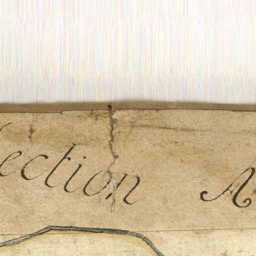 ection A